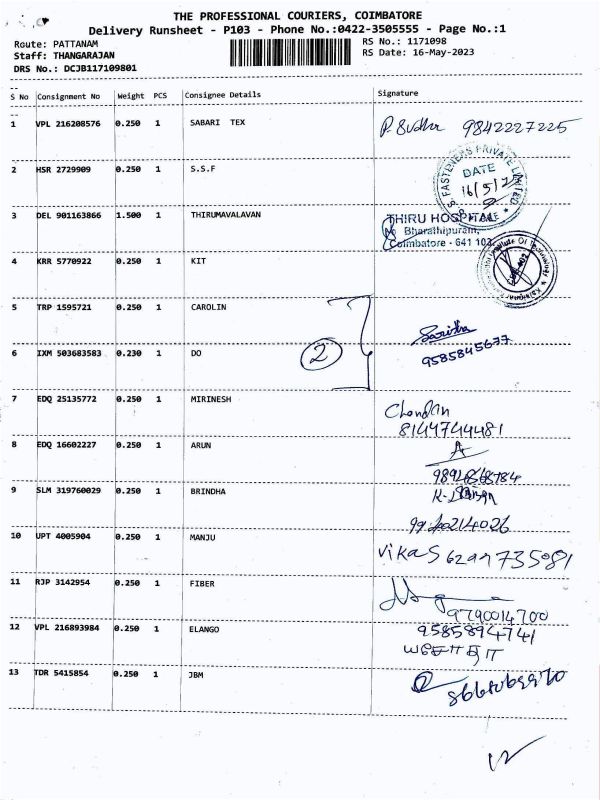 THE PROFESSIONAL COURIERS, COIMBATORE
Delivery Runsheet - P103 - Phone No.:0422-3505555 - Page No.:1
Route: PATTANAM
RS No.: 1171098
Staff: THANGARAJAN
RS Date: 16-May-2023
DRS No.: DCJB117109801
S No Consignment No Weight PCS Consignee Details Signature
1 VPL 216208576 0.250 1 SABARI TEX P. Sudha 9842227225
2 HSR 2729909 0.250 1 S.S.F
FASTENERS PRIVATE LIMITED
DATE
16/5/2
3 DEL 901163866 1.500 1 THIRUMAVALAVAN
THIRU HOSPITAL
Bharathipuram,
Coimbatore - 641 103
4 KRR 5770922 0.250 1 KIT
Institute Of Technology
5 TRP 1595721 0.250 1 CAROLIN
6 IXM 503683583 0.230 1 DO
2
9585845677
7 EDQ 25135772 0.250 1 MIRINESH
Chandan
8144744481
8 EDQ 16602227 0.250 1 ARUN
A
9 SLM 319760029 0.250 1 BRINDHA
10 UPT 4005904 0.250 1 MANJU
Vikas
11 RJP 3142954 0.250 1 FIBER
9790014700
12 VPL 216893984 0.250 1 ELANGO
9585894741
13 TDR 5415854 0.250 1 JBM